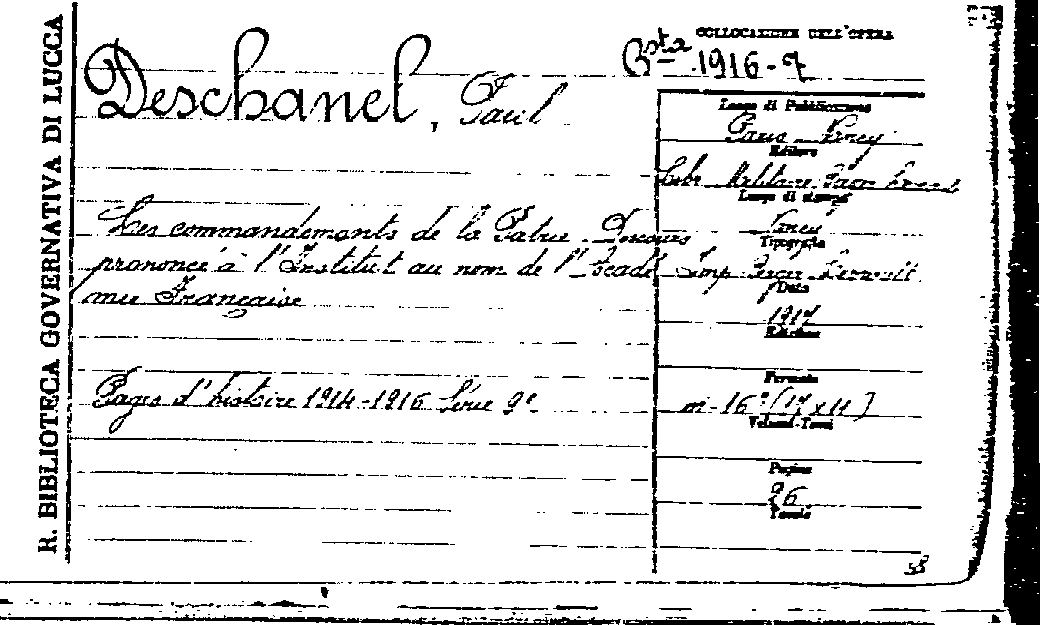 R. BIBLIOTECA GOVERNATIVA DI LUCCA
COLLOCAZIONE DELL'OPERA
Bsta 1916-7
Deschanel, Paul
Les commandements de la Patrie. Discours
prononcé à l'Institut au nom de l'Acadé
mie Française
Pages d'histoire 1914-1916 Série 9e
Luogo di Pubblicazione
Paris Nancy
Editore
Libr. Militaire
Luogo di stampa
Nancy
Tipografia
Imp. Berger Levrault
Data
1917
Edizione
Formato
in-16° (17x11)
Volumi-Tomi
Pagine
26
Tavole